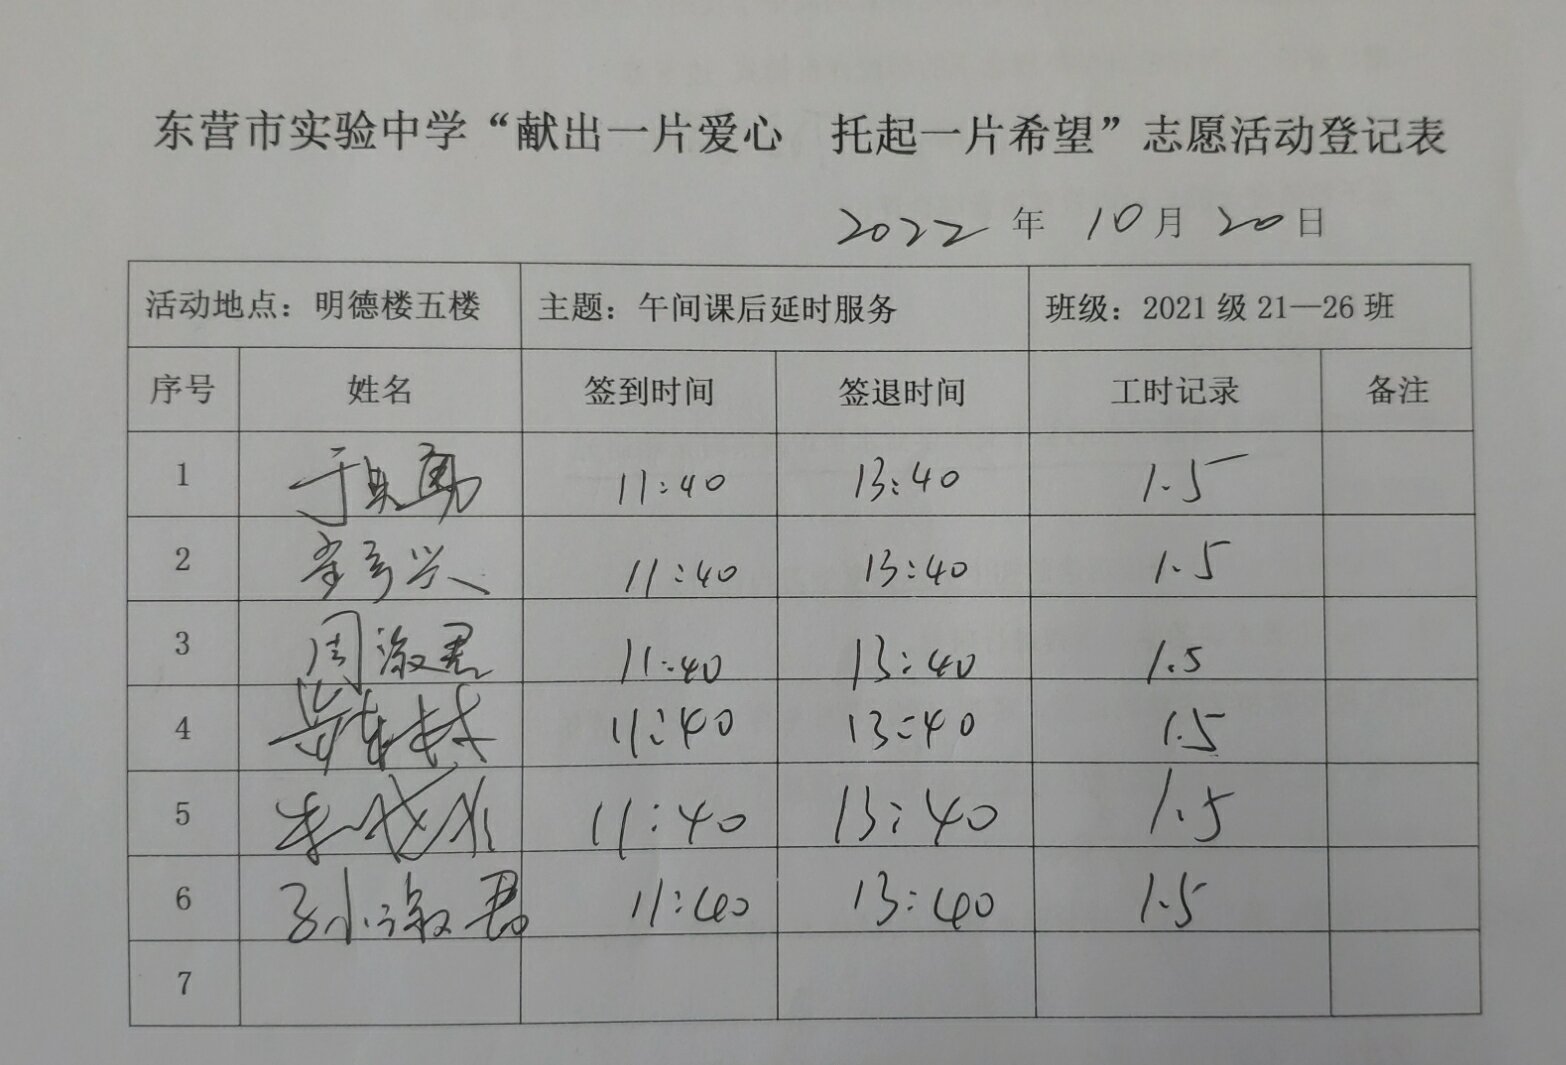 东营市实验中学“献出一片爱心 托起一片希望”志愿活动登记表
2022年10月20日
活动地点：明德楼五楼 主题：午间课后延时服务 班级：2021级21—26班
序号 姓名 签到时间 签退时间 工时记录 备注
1 11:40 13:40 1.5
2 11:40 13:40 1.5
3 周淑君 11:40 13:40 1.5
4 11:40 13:40 1.5
5 11:40 13:40 1.5
6 孙淑君 11:40 13:40 1.5
7